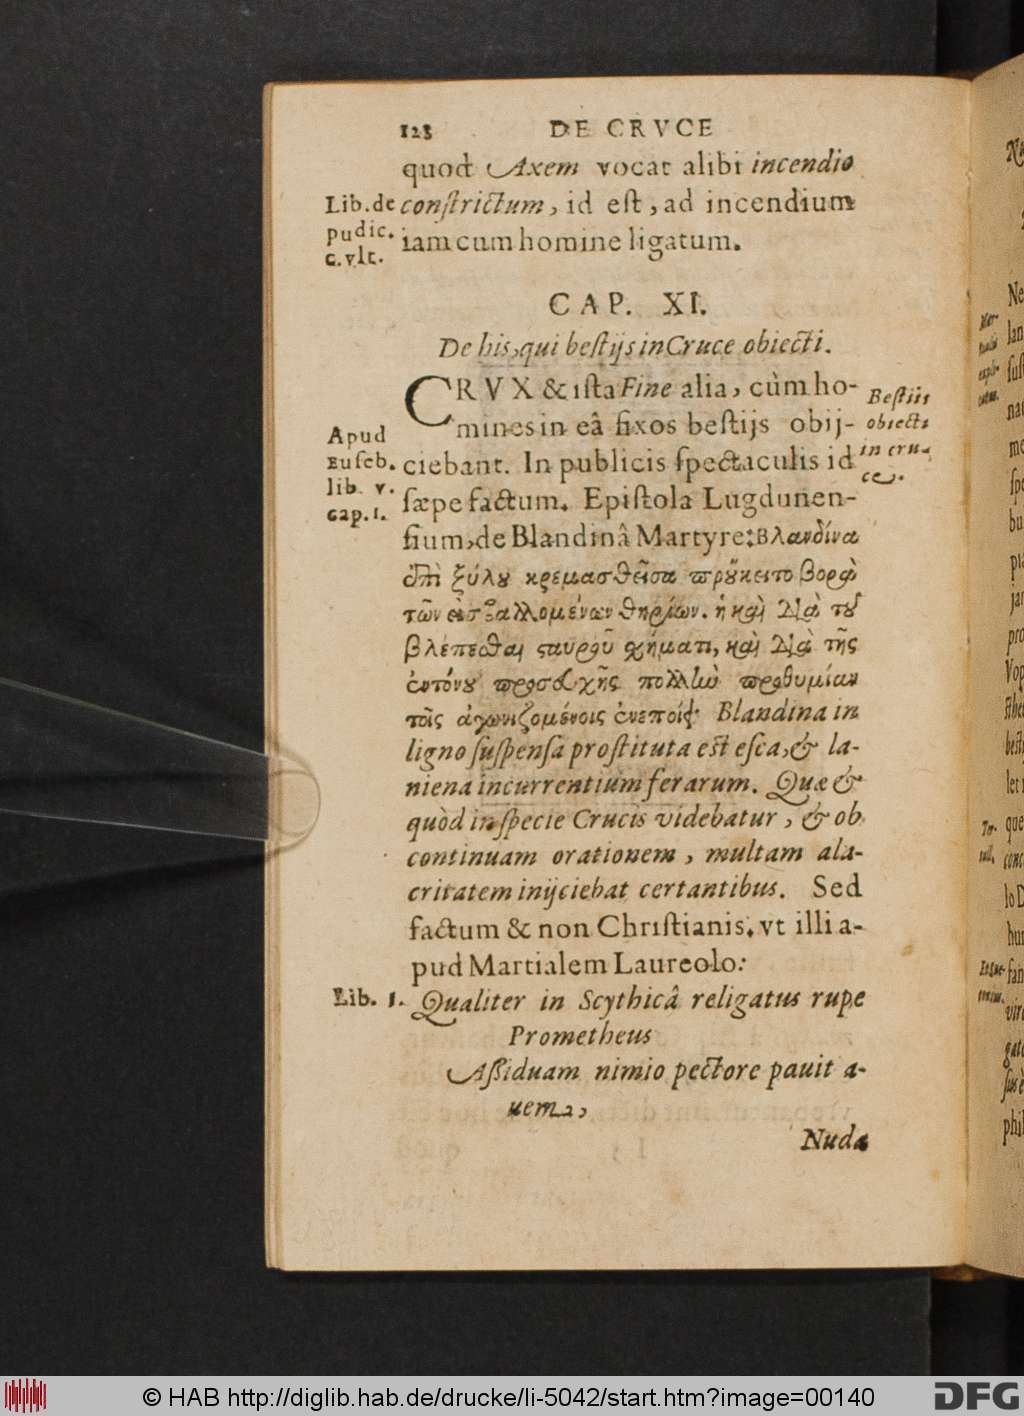 123 DE CRVCE
quod Axem vocat alibi incendio
Lib. de constrictum, id est, ad incendium
pudic. iam cum homine ligatum.
c. vlt.
CAP. XI.
De his, qui bestijs in Cruce obiecti.
CRVX & ista Fine alia, cùm ho-
Bestiis
mines in eâ fixos bestijs obij-
obiecti
Apud
Euseb. ciebant. In publicis spectaculis id
in cru-
ce.
lib. v. sæpe factum. Epistola Lugdunen-
cap. 1.
sium, de Blandinâ Martyre: βλανδίνα
ἐπὶ ξύλου κρεμασθεῖσα προὔκειτο βορὰ
τῶν εἰσβαλλομένων θηρίων. ἡ καὶ διὰ τοῦ
βλέπεσθαι σταυροῦ σχήματι, καὶ διὰ τῆς
ἐντόνου προσευχῆς πολλὴν προθυμίαν
τοῖς ἀγωνιζομένοις ἐνεποίει. Blandina in
ligno suspensa prostituta est esca, & la-
niena incurrentium ferarum. Quæ &
quòd in specie Crucis videbatur, & ob
continuam orationem, multam ala-
critatem inijciebat certantibus. Sed
factum & non Christianis. vt illi a-
pud Martialem Laureolo:
Lib. 1. Qualiter in Scythicâ religatus rupe
Prometheus
Assiduam nimio pectore pauit a-
uem,
Nuda
© HAB http://diglib.hab.de/drucke/li-5042/start.htm?image=00140
DFG